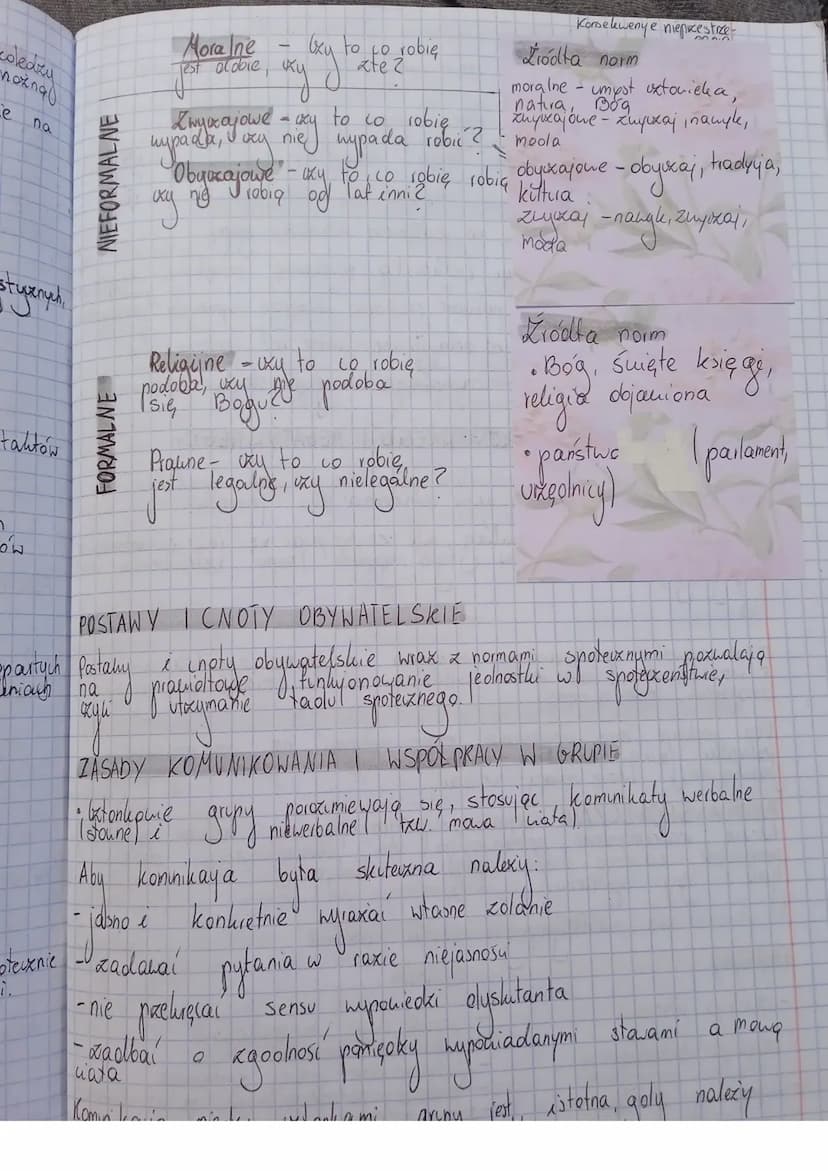 Konsekwencje nieprzestrze-
Moralne - czy to co robię
jest dobre, czy złe?
NIEFORMALNE
Zwyczajowe - czy to co robię
wypada, czy nie wypada robić?
Obyczajowe - czy to, co robię robią
czy nie robią od lat inni?
Źródła norm
moralne - umysł człowieka,
natura, Bóg
zwyczajowe - zwyczaj, nawyk,
moda
obyczajowe - obyczaj, tradycja,
kultura
zwyczaj - nawyk, zwyczaj,
moda
FORMALNE
Religijne - czy to co robię
podoba, czy nie podoba
się Bogu?
Prawne - czy to co robię,
jest legalne, czy nielegalne?
Źródła norm
• Bóg, święte księgi,
religia objawiona
• państwo (parlament,
urzędnicy)
POSTAWY I CNOTY OBYWATELSKIE
Postawy i cnoty obywatelskie wraz z normami społecznymi pozwalają
na prawidłowe funkcjonowanie jednostki w społeczeństwie,
czyli utrzymanie ładu społecznego.
ZASADY KOMUNIKOWANIA I WSPÓŁPRACY W GRUPIE
• Członkowie grupy porozumiewają się, stosując komunikaty werbalne
(słowne) i niewerbalne (tzw. mowa ciała)
Aby komunikacja była skuteczna należy:
- jasno i konkretnie wyrażać własne zdanie
- zadawać pytania w razie niejasności
- nie przekręcać sensu wypowiedzi dyskutanta
- zadbać o zgodność pomiędzy wypowiadanymi słowami a mową
ciała
grupy jest istotna, gdy należy